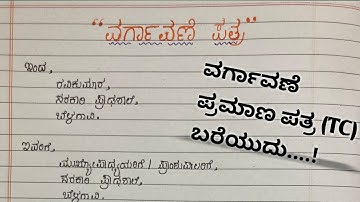 “ವರ್ಗಾವಣೆ ಪತ್ರ”
ಇಂದ,
ರವಿಕುಮಾರ,
ಸರಕಾರಿ ಪ್ರೌಢಶಾಲೆ,
ಬೆಳಗಾವಿ.
ಇವರಿಗೆ,
ಮುಖ್ಯೋಪಾಧ್ಯಾಯರಿಗೆ / ಪ್ರಾಂಶುಪಾಲರಿಗೆ,
ಸರಕಾರಿ ಪ್ರೌಢಶಾಲೆ,
ಬೆಳಗಾವಿ.
ವರ್ಗಾವಣೆ
ಪ್ರಮಾಣ ಪತ್ರ (TC)
ಬರೆಯುದು....!